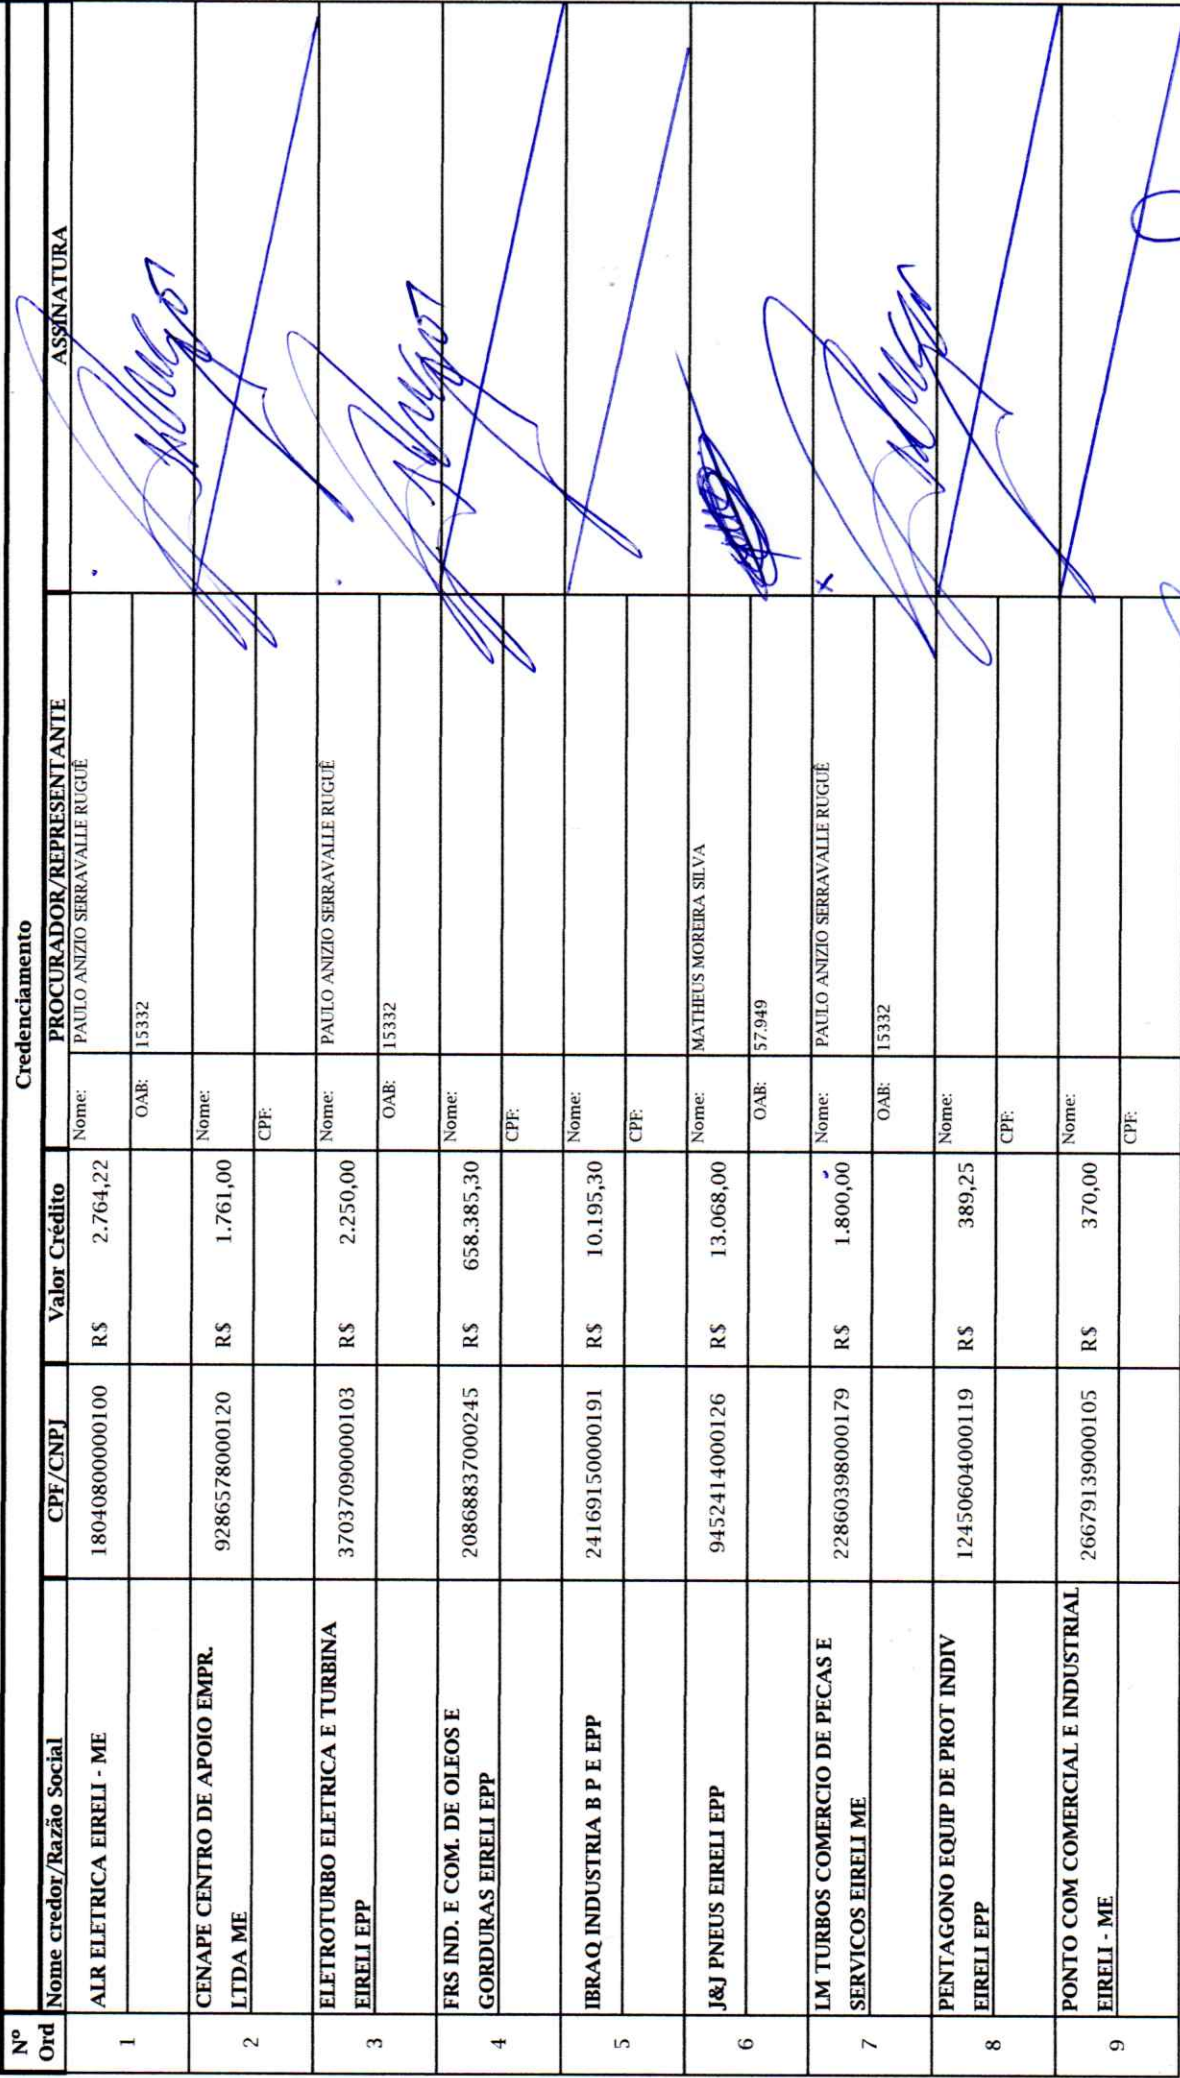 Credenciamento
Nº Ord Nome credor/Razão Social CPF/CNPJ Valor Crédito PROCURADOR/REPRESENTANTE ASSINATURA
1 ALR ELETRICA EIRELI - ME 18040800000100 R$ 2.764,22 Nome: PAULO ANIZIO SERRAVALLE RUGUÊ
OAB: 15332
2 CENAPE CENTRO DE APOIO EMPR. 9286578000120 R$ 1.761,00 Nome:
LTDA ME CPF:
3 ELETROTURBO ELETRICA E TURBINA 3703709000103 R$ 2.250,00 Nome: PAULO ANIZIO SERRAVALLE RUGUÊ
EIRELI EPP OAB: 15332
4 FRS IND. E COM. DE OLEOS E 20868837000245 R$ 658.385,30 Nome:
GORDURAS EIRELI EPP CPF:
5 IBRAQ INDUSTRIA B P E EPP 24169150000191 R$ 10.195,30 Nome:
CPF:
6 J&J PNEUS EIRELI EPP 9452414000126 R$ 13.068,00 Nome: MATHEUS MOREIRA SILVA
OAB: 57.949
7 LM TURBOS COMERCIO DE PECAS E 22860398000179 R$ 1.800,00 Nome: PAULO ANIZIO SERRAVALLE RUGUÊ
SERVICOS EIRELI ME OAB: 15332
8 PENTAGONO EQUIP DE PROT INDIV 12450604000119 R$ 389,25 Nome:
EIRELI EPP CPF:
9 PONTO COM COMERCIAL E INDUSTRIAL 26679139000105 R$ 370,00 Nome:
EIRELI - ME CPF: